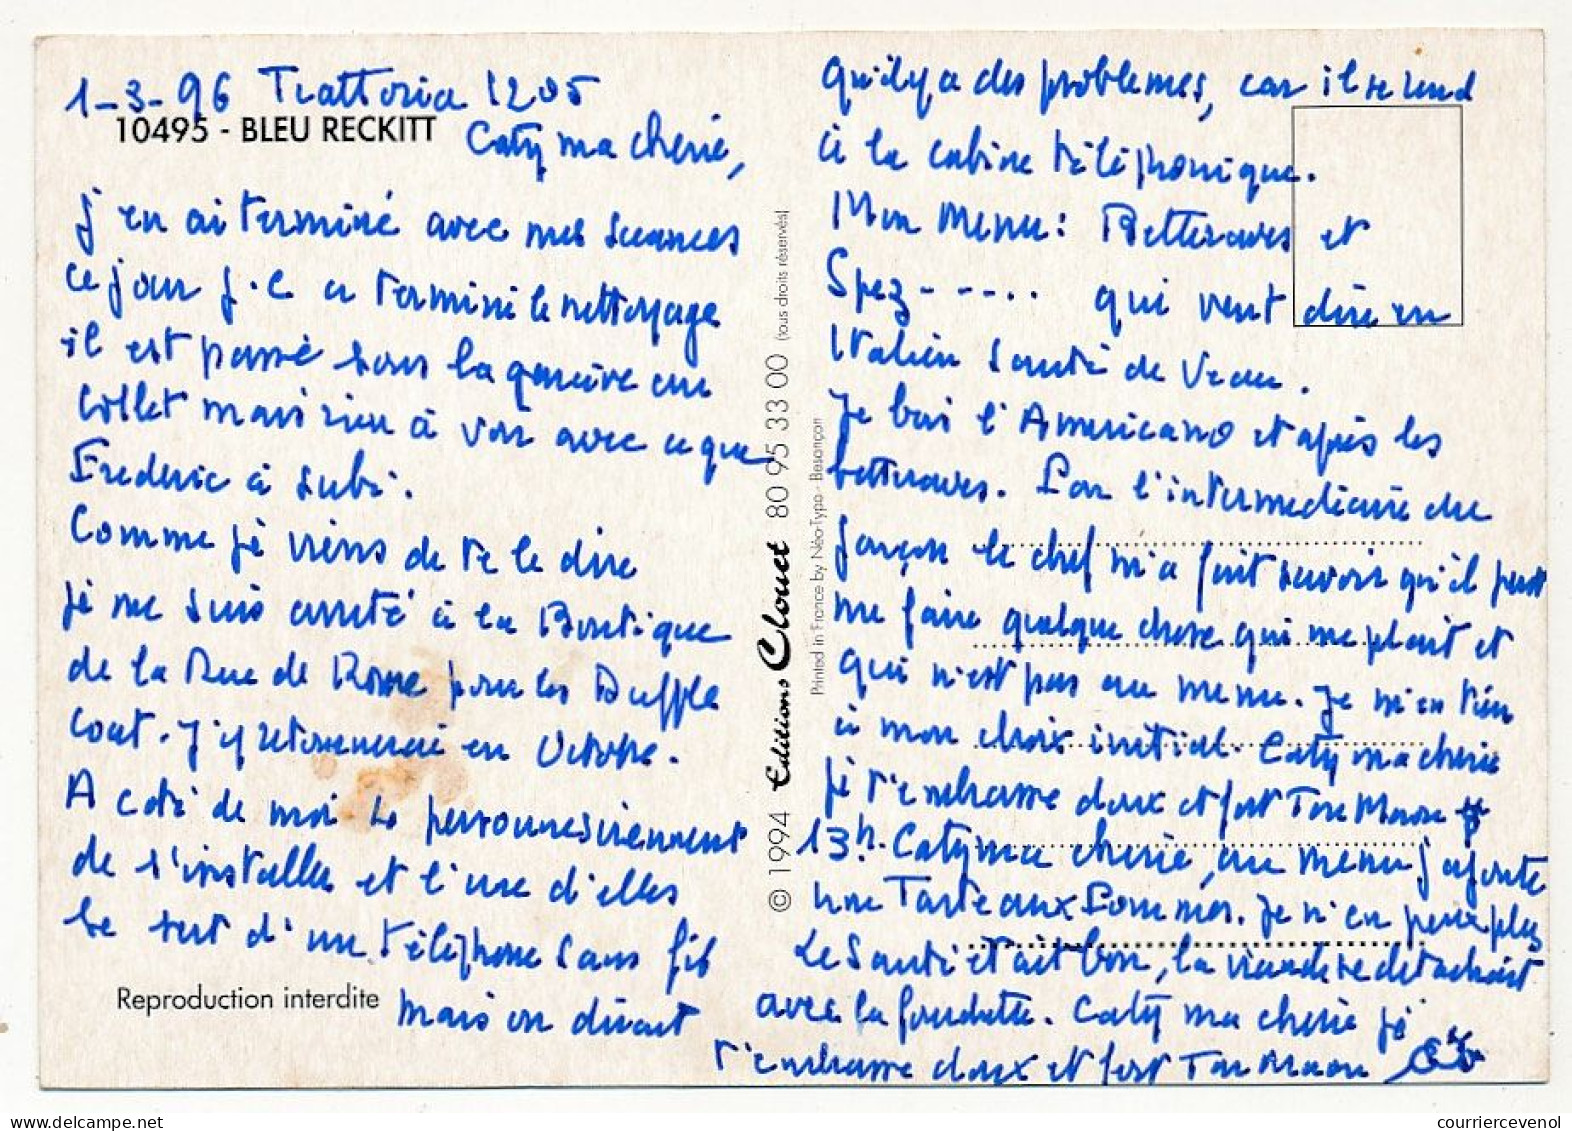 1-3-96 Trattoria 1205
10495 - BLEU RECKITT
Caty ma cherie,
J'en ai terminé avec mes seances
ce jour J.C a terminé le nettoyage
il est passé sous la gencive un
collet mais rien à voir avec ce que
Frederic à subi.
Comme je viens de te le dire
je me suis arreté à la Boutique
de la Rue de Rome pour les Duffle
coat. J'y retournerai en Octobre.
A coté de moi 4 personnes viennent
de s'installer et l'une d'elles
se sert d'un téléphone sans fil
mais on dirait
Reproduction interdite
© 1994 Editions Clouet 80 95 33 00 (tous droits réservés)
Printed in France by Néo-Typo - Besançon
qu'il y a des problemes, car il se rend
à la cabine téléphonique.
Mon Menu : Betteraves et
Spez - - - . . qui veut dire en
Italien Sauté de Veau.
Je bois l'Americano et après les
betteraves. Par l'intermediaire du
garçon le chef m'a fait savoir qu'il peut
me faire quelque chose qui me plait et
qui n'est pas au menu. Je m'en tien
à mon choix initial. Caty ma cherie
je t'embrasse doux et fort Ton
13h. Caty ma cherie, au menu j'ajoute
une Tarte aux Pommes. Je n'en peux plus
Le Sauté etait bon, la viande se detachait
avec la fourchette. Caty ma cherie je
t'embrasse doux et fort Ton
courriercevenol
delcampe.net